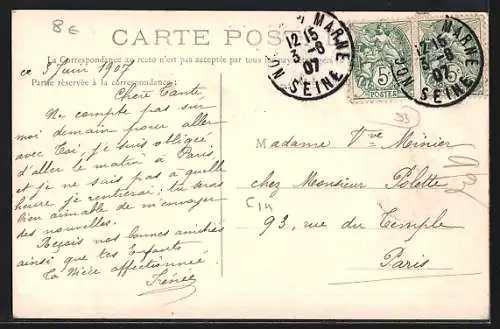 8€
CARTE POS
La Correspondance au recto n'est pas acceptée par tous
ce 5 Juin 1907
Partie réservée à la correspondance
Chère Tante
Ne compte pas sur
moi demain pour aller
avec Toi, je suis obligée
d'aller le matin à Paris
et je ne sais pas à quelle
heure je rentrerai; tu seras
bien aimable de m'envoyer
des nouvelles.
Reçois nos bonnes amitiés
ainsi que tes Enfants
Ta Nièce affectionnée
Irénée
MARNE
12-15
5-6
07
SEINE
5
POSTES
MARNE
12-15
5-6
07
SEINE
5
Madame Vve Minier
chez Monsieur Polette
93, rue du Temple
Paris